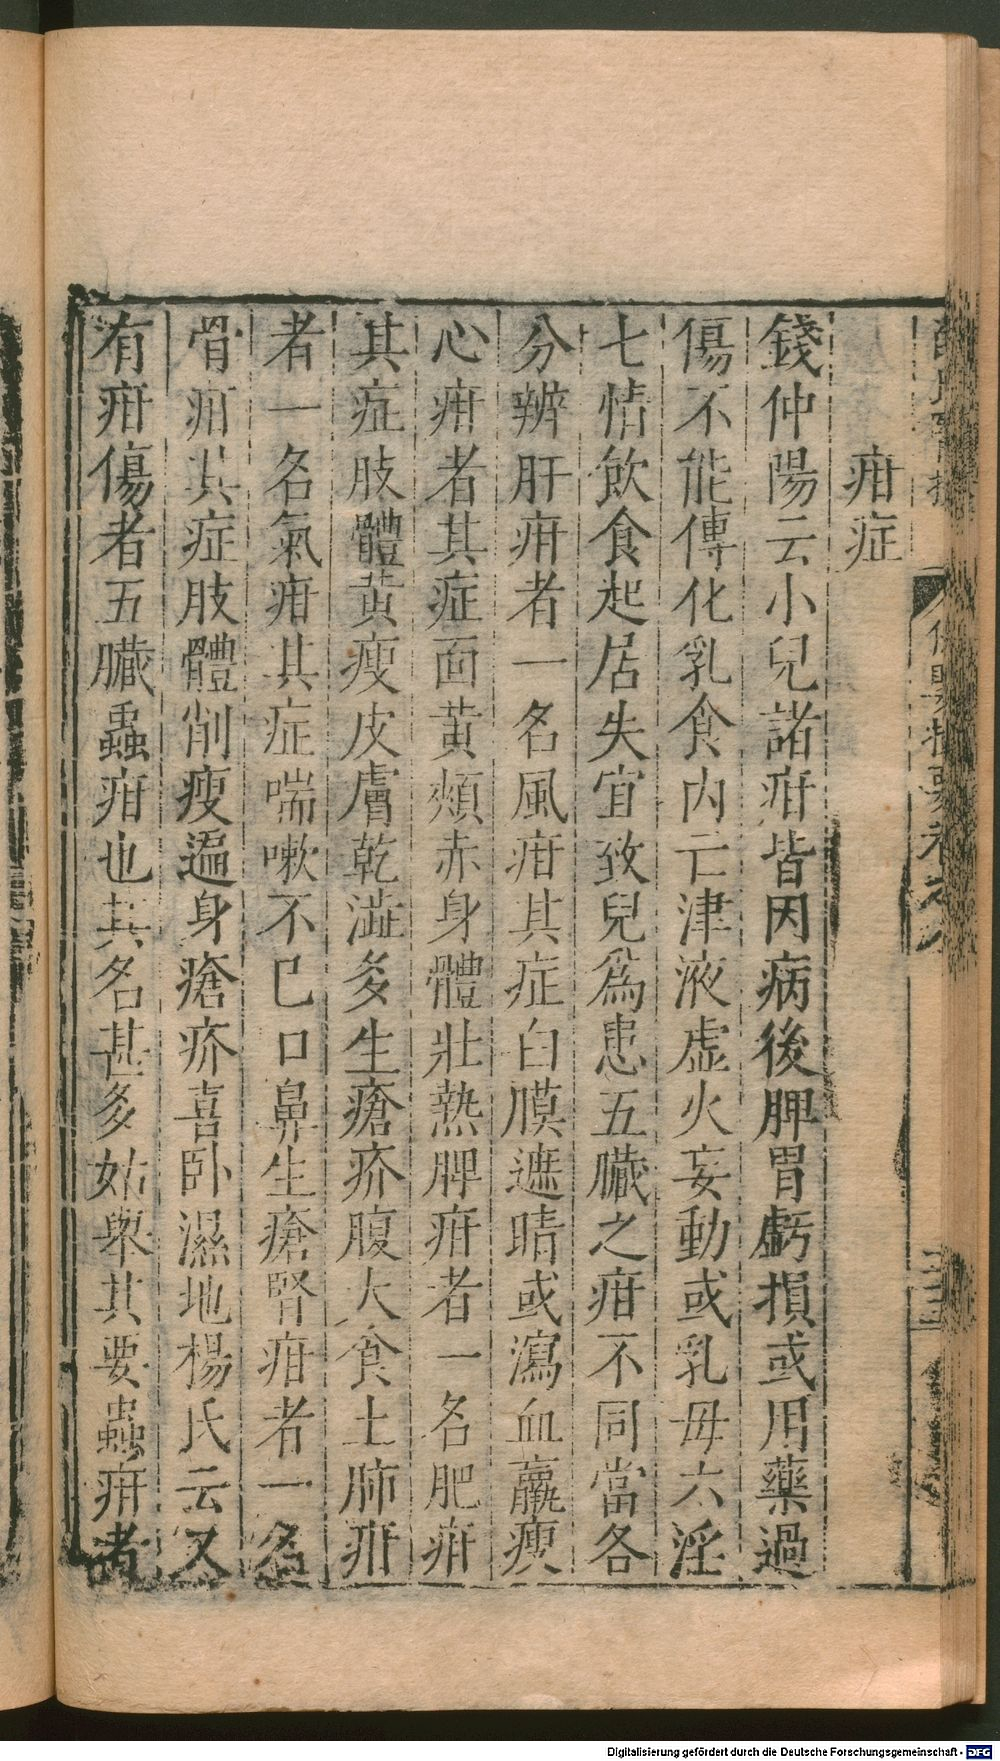 疳症
錢仲陽云小兒諸疳皆因病後脾胃虧損或用藥過
傷不能傳化乳食內亡津液虛火妄動或乳母六淫
七情飲食起居失宜致兒爲患五臟之疳不同當各
分辨肝疳者一名風疳其症白膜遮睛或瀉血羸瘦
心疳者其症面黃頰赤身體壯熱脾疳者一名肥疳
其症肢體黃瘦皮膚乾澁多生瘡疥腹大食土肺疳
者一名氣疳其症喘嗽不已口鼻生瘡腎疳者一名
骨疳其症肢體削瘦遍身瘡疥喜卧濕地楊氏云又
有疳傷者五臟蟲疳也其名甚多姑舉其要蟲疳者
Digitalisierung gefördert durch die Deutsche Forschungsgemeinschaft - DFG